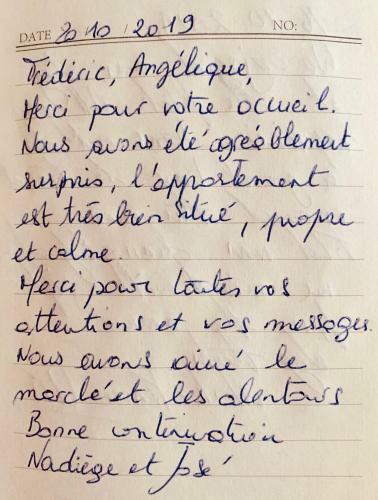 DATE 20/10/2019 NO:
Frédéric, Angélique,
Merci pour votre accueil.
Nous avons été agréablement
surpris, l'appartement
est très bien situé, propre
et calme.
Merci pour toutes vos
attentions et vos messages.
Nous avons aimé le
marché et les alentours
Bonne continuation
Nadiège et José